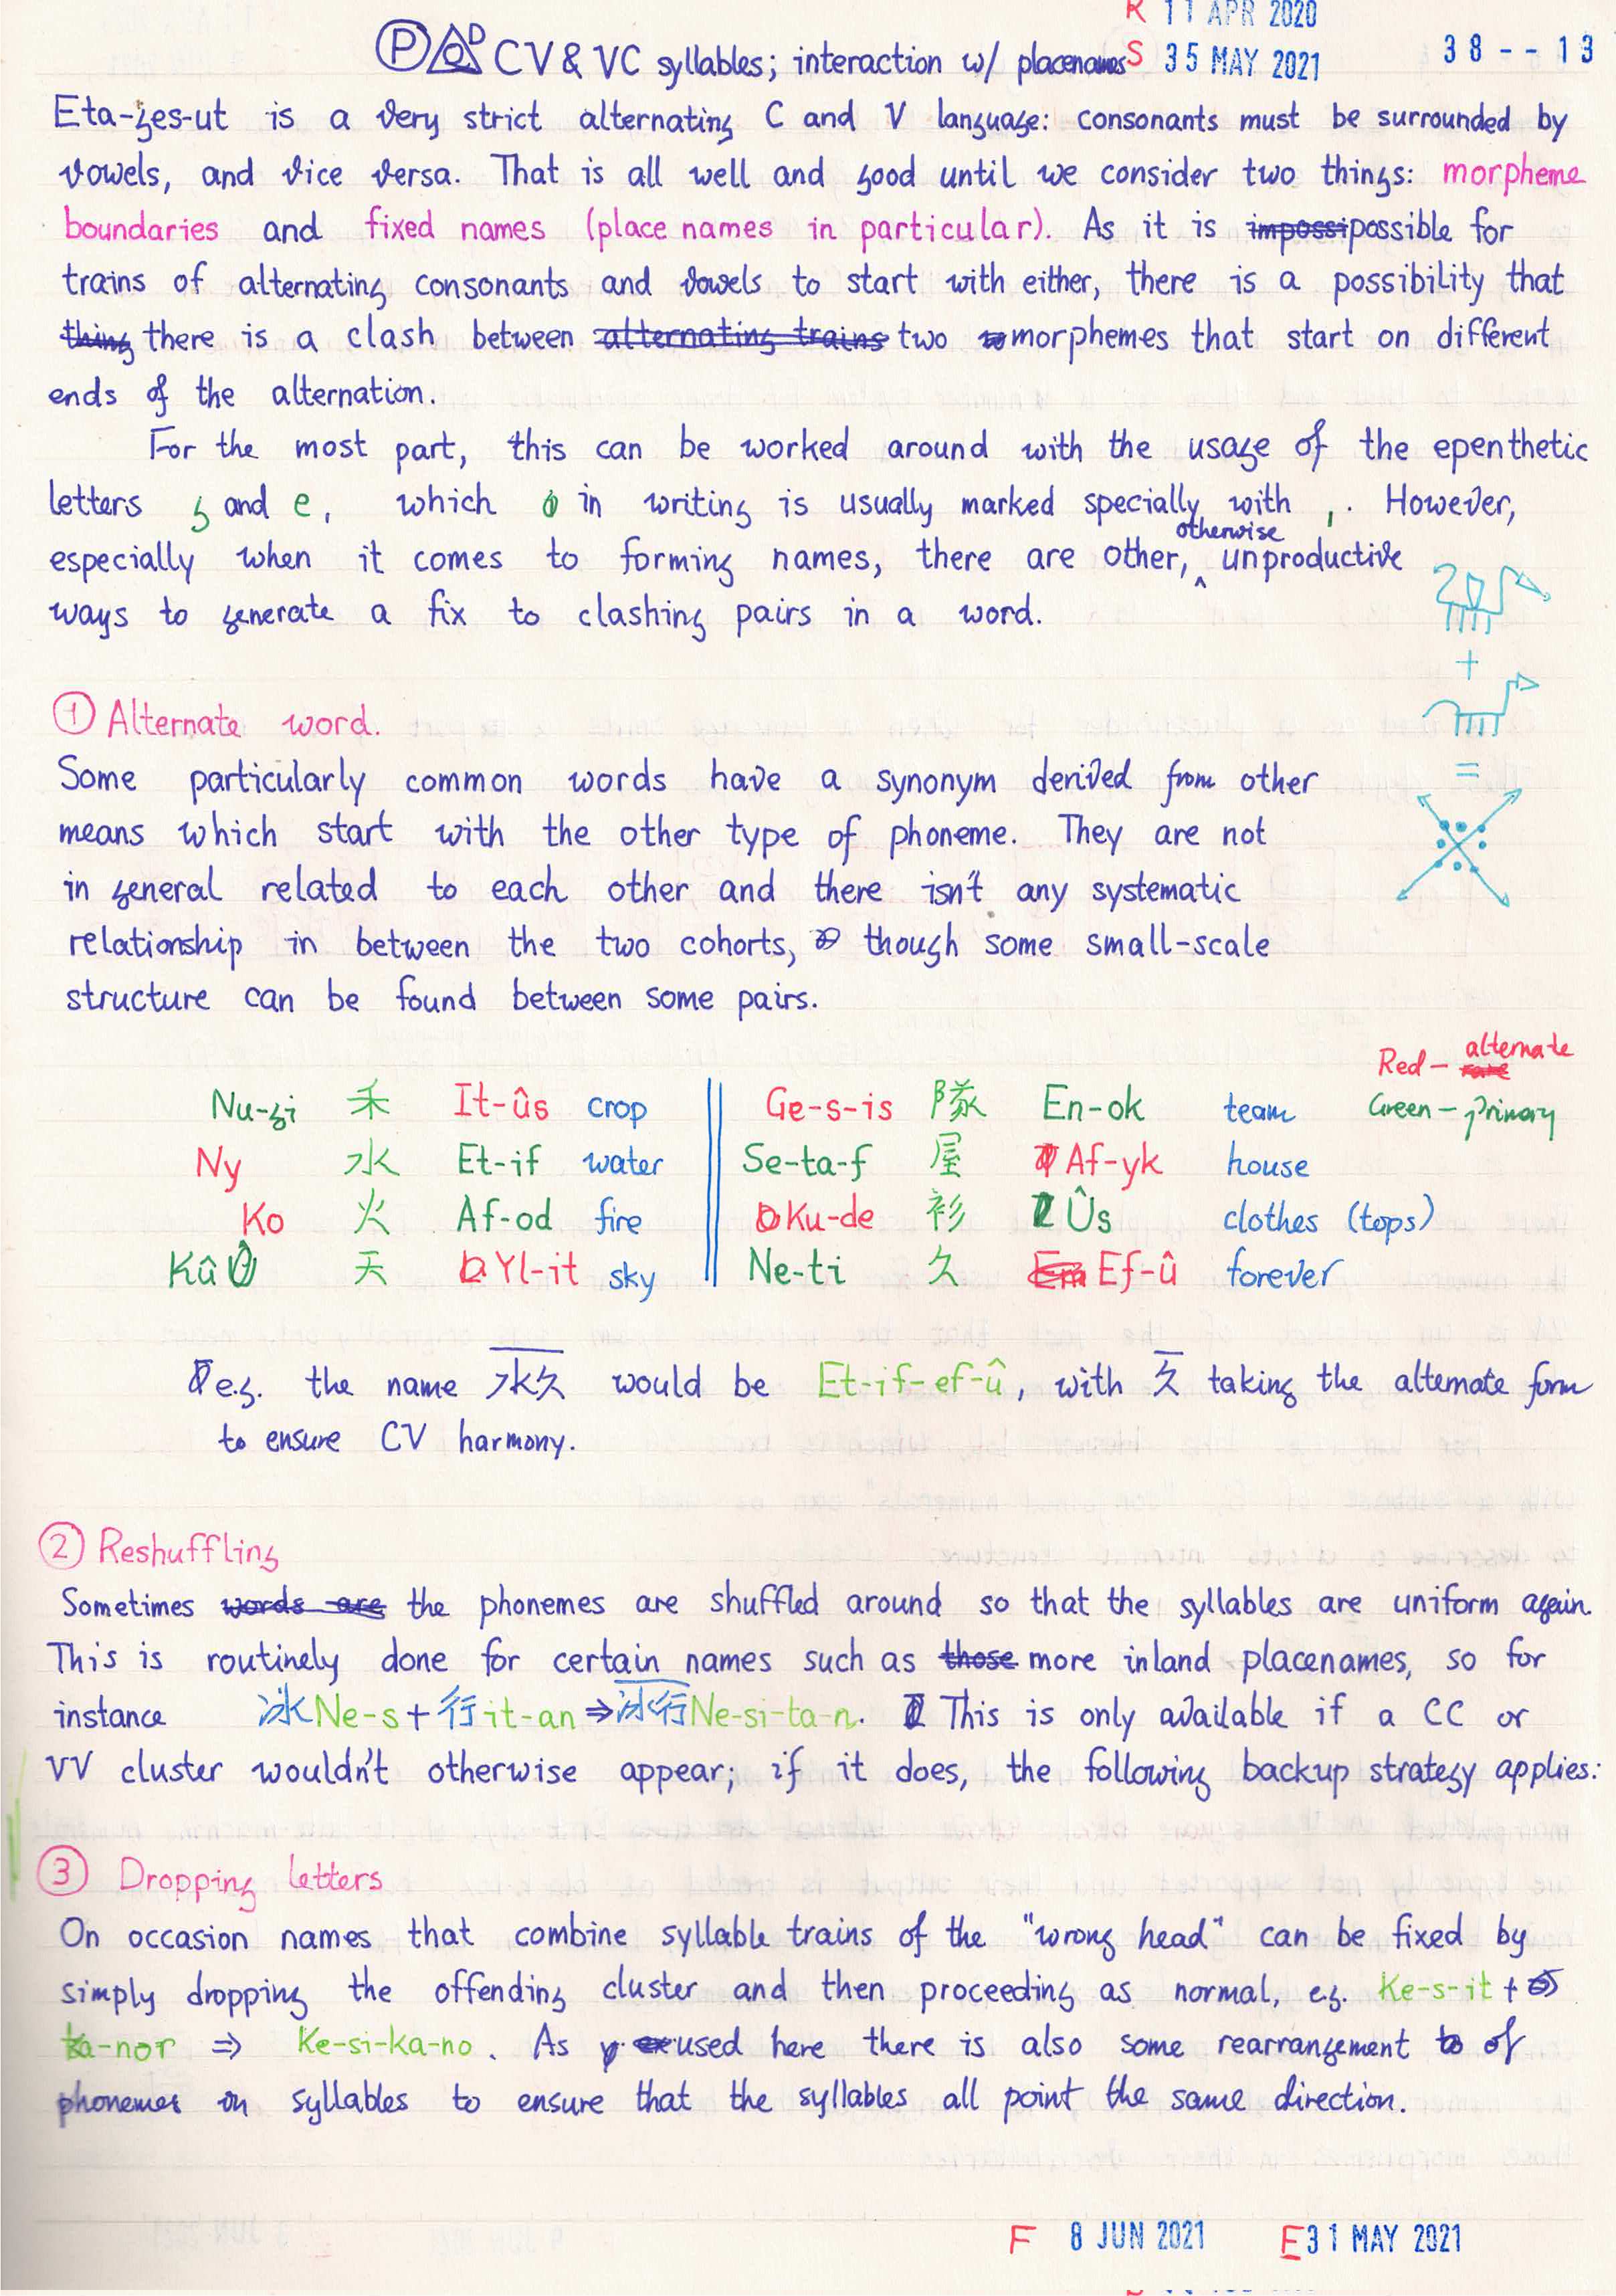 R 11 APR 2020
P D CV & VC syllables; interaction w/ placenames S 35 MAY 2021 38--13
Eta-ges-ut is a very strict alternating C and V language: consonants must be surrounded by
vowels, and vice versa. That is all well and good until we consider two things: morpheme
boundaries and fixed names (place names in particular). As it is impossi possible for
trains of alternating consonants and vowels to start with either, there is a possibility that
thing there is a clash between alternating trains two morphemes that start on different
ends of the alternation.
For the most part, this can be worked around with the usage of the epenthetic
letters g and e, which in writing is usually marked specially with ,. However,
especially when it comes to forming names, there are other, otherwise unproductive
ways to generate a fix to clashing pairs in a word.
+
=
① Alternate word.
Some particularly common words have a synonym derived from other
means which start with the other type of phoneme. They are not
in general related to each other and there isn't any systematic
relationship in between the two cohorts, though some small-scale
structure can be found between some pairs.
Red – rare alternate
Green – primary
Nu-gi 禾 It-ûs crop Ge-s-is 隊 En-ok team
Ny 水 Et-if water Se-ta-f 屋 Af-yk house
Ko 火 Af-od fire Ku-de 衫 Ûs clothes (tops)
Kâ 天 Yl-it sky Ne-ti 久 Em Ef-û forever
e.g. the name 水久 would be Et-if-ef-û, with 久 taking the alternate form
to ensure CV harmony.
② Reshuffling
Sometimes words are the phonemes are shuffled around so that the syllables are uniform again.
This is routinely done for certain names such as those more inland placenames, so for
instance 冰Ne-s+行it-an⇒冰行Ne-si-ta-n. This is only available if a CC or
VV cluster wouldn't otherwise appear; if it does, the following backup strategy applies:
③ Dropping letters
On occasion names that combine syllable trains of the "wrong head" can be fixed by
simply dropping the offending cluster and then proceeding as normal, e.g. Ke-s-it +
ka-nor ⇒ Ke-si-ka-no. As used here there is also some rearrangement to of
phonemes in syllables to ensure that the syllables all point the same direction.
F 8 JUN 2021 E 31 MAY 2021